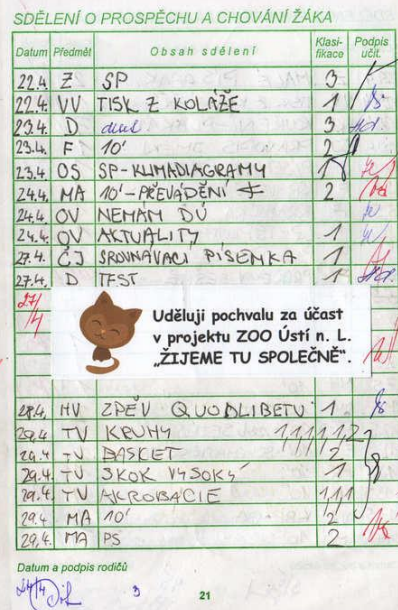 SDĚLENÍ O PROSPĚCHU A CHOVÁNÍ ŽÁKA
Datum Předmět Obsah sdělení Klasi-fikace Podpis učit.
22.4. Z SP 3
22.4. VV TISK Z KOLÁŽE 1
23.4. D 3
23.4. F 10' 2
23.4. OS SP-KLIMADIAGRAMY 1
24.4. MA 10'-PŘEVÁDĚNÍ 2
24.4. OV NEMÁM DÚ
24.4. OV AKTUALITY 1
27.4. ČJ SROVNÁVACÍ PÍSEMKA 1
27.4. D TEST 1
27/4
Uděluji pochvalu za účast
v projektu ZOO Ústí n. L.
„ŽIJEME TU SPOLEČNĚ“.
28.4. HV ZPĚV QUODLIBETU 1
29.4. TV KRUHY 1,1,1,1,1,2
29.4. TV BASKET 2
29.4. TV SKOK VYSOKÝ 1
29.4. TV AKROBACIE 1,1,1
29.4. MA 10' 2
29.4. MA PS 2
Datum a podpis rodičů
21